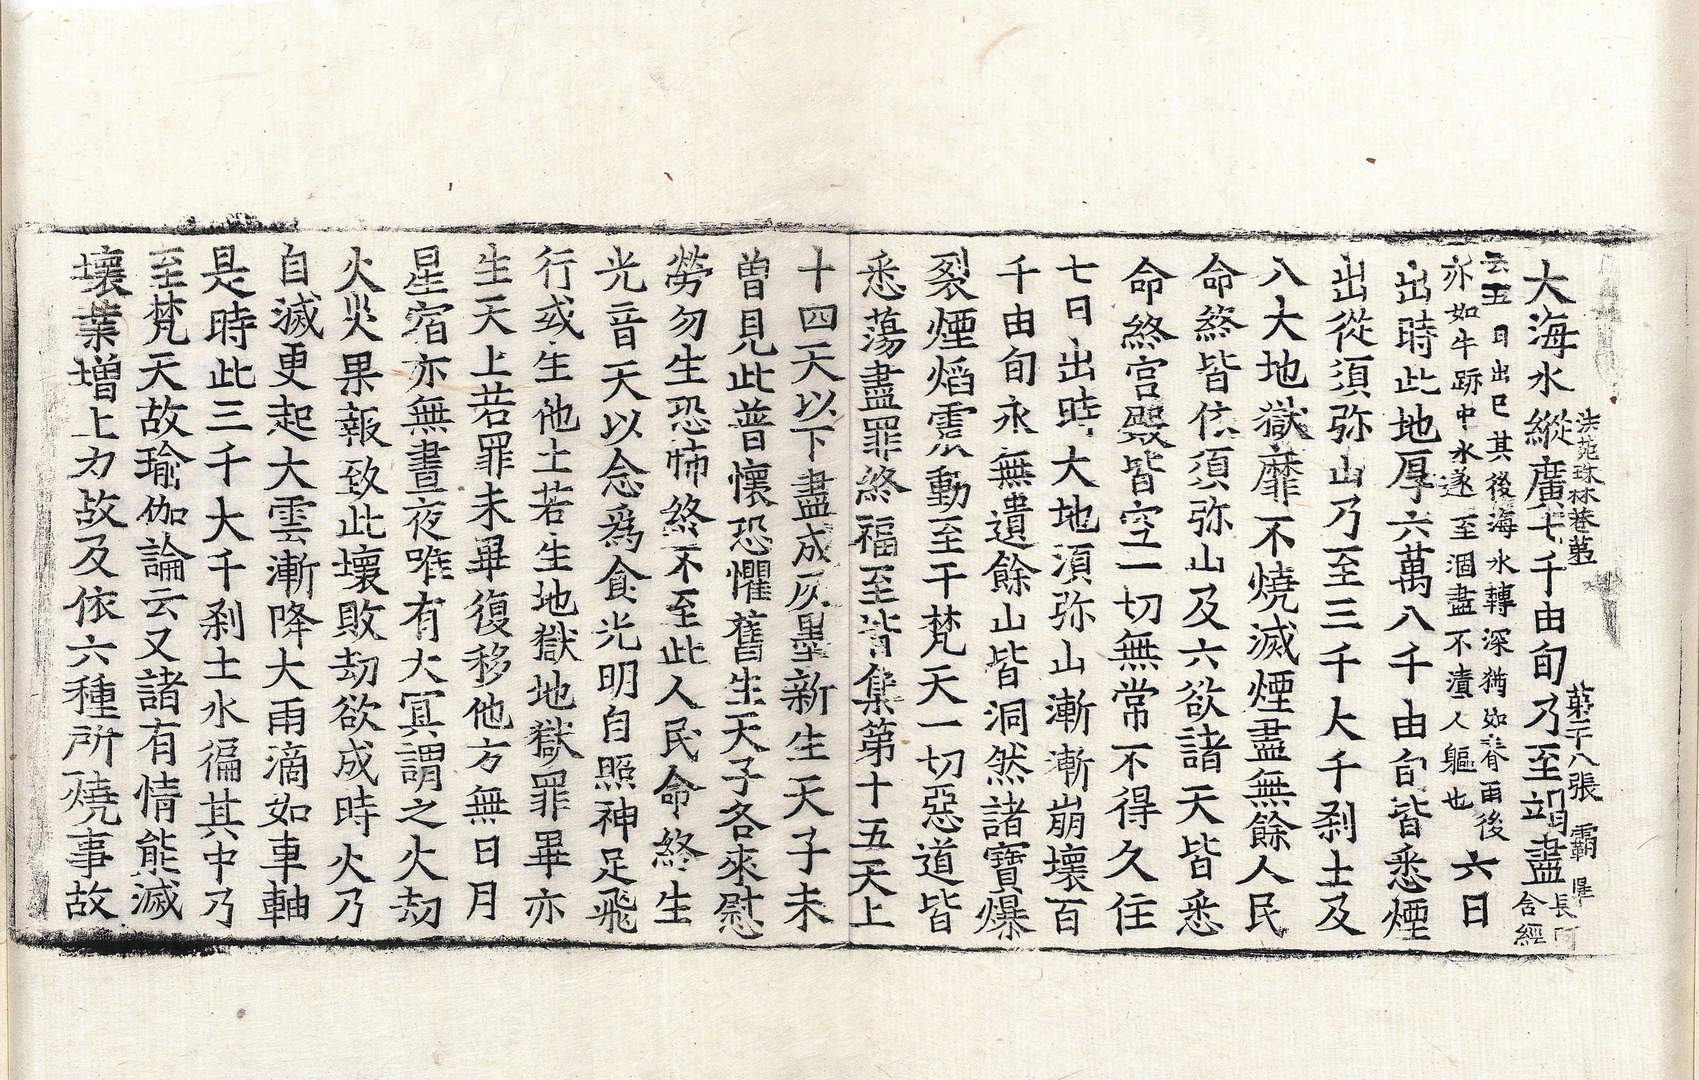 法苑珠林卷第一 第二十八張 霸
大海水縱廣七千由旬乃至竭盡長阿含經
云五日出已其後海水轉深猶如春雨後
亦如牛跡中水遂至涸盡不漬人軀也六日
出時此地厚六萬八千由旬皆悉煙
出從須弥山乃至三千大千剎土及
八大地獄靡不燒滅煙盡無餘人民
命終皆依須弥山及六欲諸天皆悉
命終宮殿皆空一切無常不得久住
七日出時大地須弥山漸漸崩壞百
千由旬永無遺餘山皆洞然諸寶爆
裂煙焰震動至于梵天一切惡道皆
悉蕩盡罪終福至皆集第十五天上
十四天以下盡成灰墨新生天子未
曾見此普懷恐懼舊生天子各來慰
勞勿生恐怖終不至此人民命終生
光音天以念爲食光明自照神足飛
行或生他土若生地獄地獄罪畢亦
生天上若罪未畢復移他方無日月
星宿亦無晝夜唯有大冥謂之火劫
火災果報致此壞敗劫欲成時火乃
自滅更起大雲漸降大雨滴如車軸
是時此三千大千剎土水徧其中乃
至梵天故瑜伽論云又諸有情能滅
壞業增上力故及依六種所燒事故